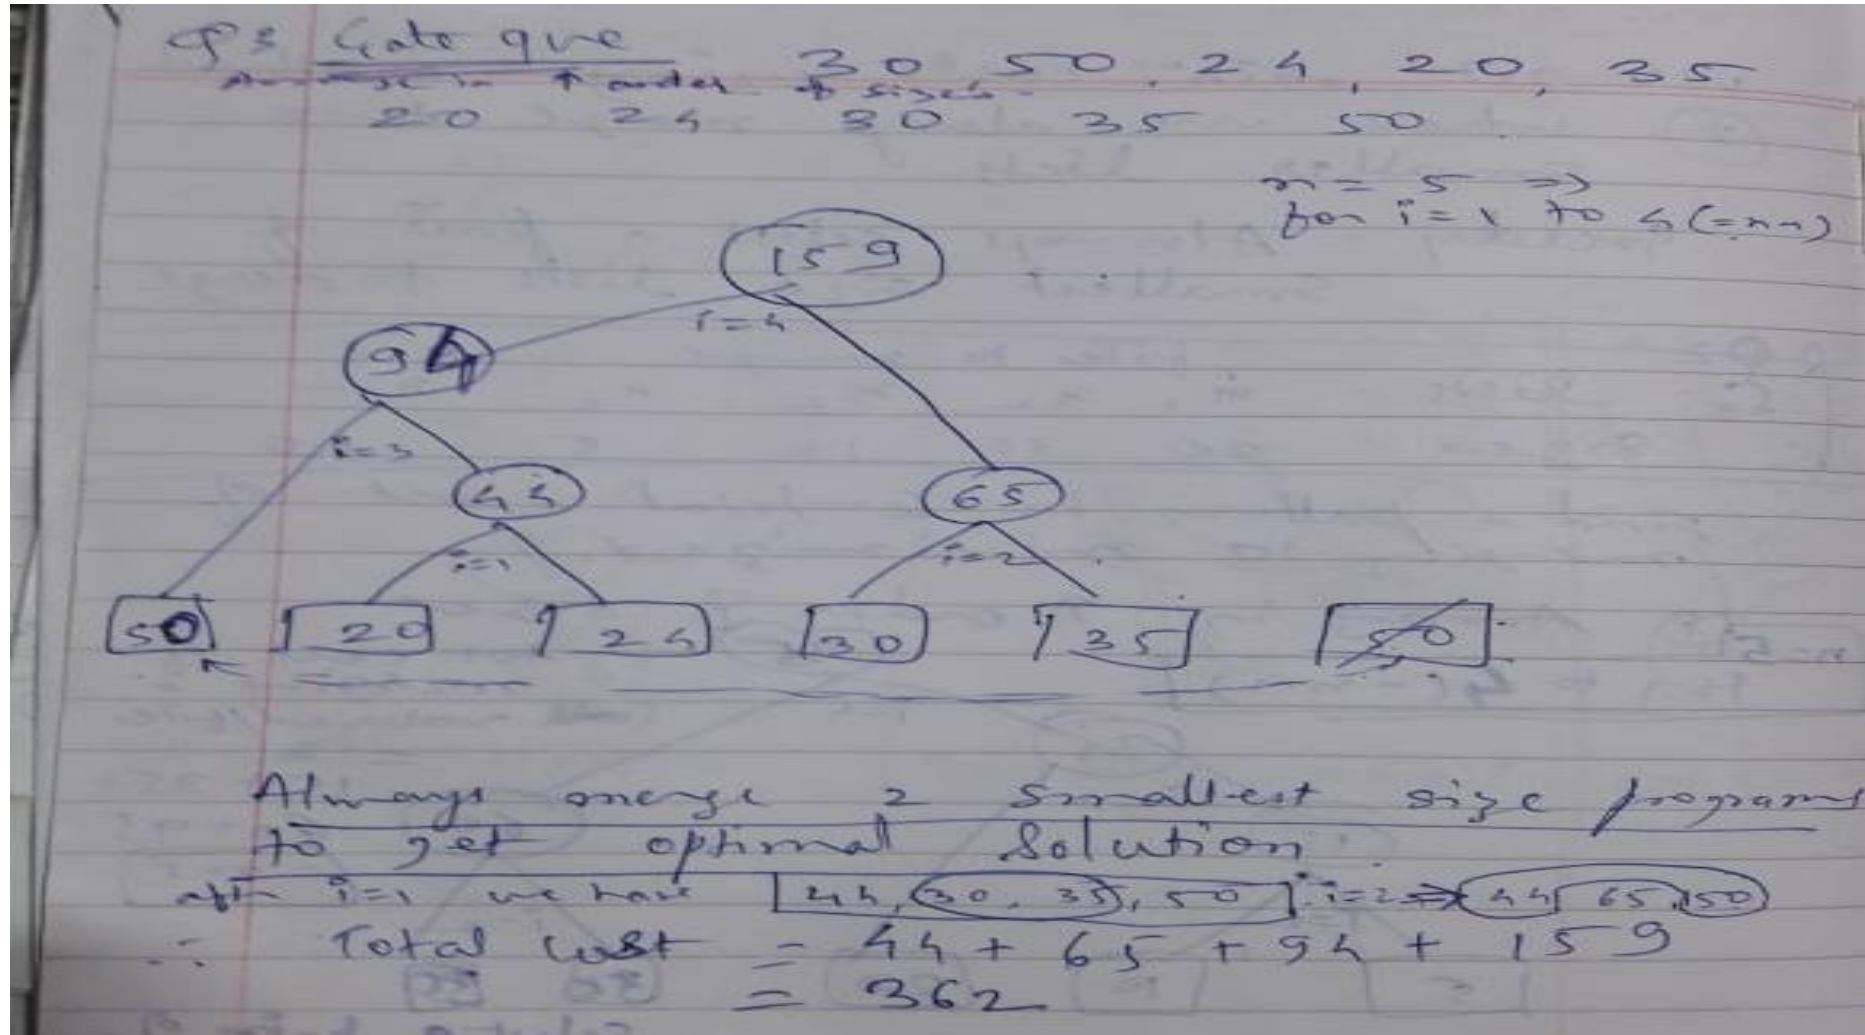 Gate que 30, 50, 24, 20, 35
Arrange in ↑ order of sizes
20 24 30 35 50
n = 5 ⇒
for i = 1 to 4 (= n-1)
159
i=4
94
i=3
44 65
i=1 i=2
50 20 24 30 35 50
Always merge 2 smallest size programs
to get optimal solution.
after i=1 we have 44, 30, 35, 50 i=2 ⇒ 44, 65, 50
∴ Total cost = 44 + 65 + 94 + 159
= 362